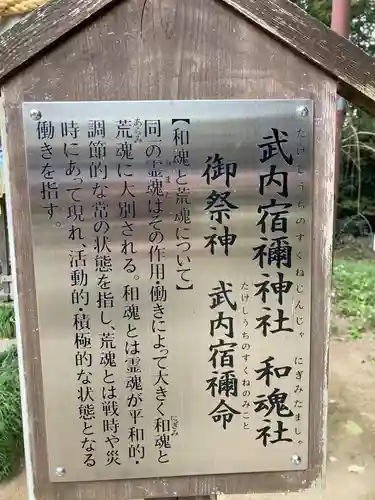 武内宿禰神社　和魂社
たけしうちのすくねじんじゃ　にぎみたましゃ
御祭神　武内宿禰命
たけしうちのすくねのみこと
【和魂と荒魂について】
同一の霊魂はその作用・働きによって大きく和魂と
にぎみ
荒魂に大別される。和魂とは霊魂が平和的・
あらみ
調節的な常の状態を指し、荒魂とは戦時や災
時にあって現れ、活動的・積極的な状態となる
働きを指す。